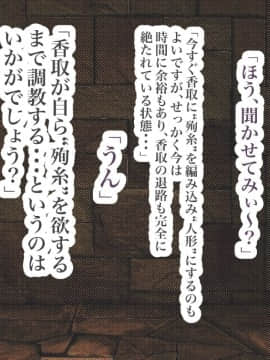 「ほう、聞かせてみぃ~?」
「今すぐ香取に“殉糸”を編み込み“人形”にするのも
よいですが、せっかく今は
時間に余裕もあり、香取の退路も完全に
絶たれている状態・・・」
「うん」
「香取が自ら“殉糸”を欲する
まで調教する・・・というのは
いかがでしょう?」